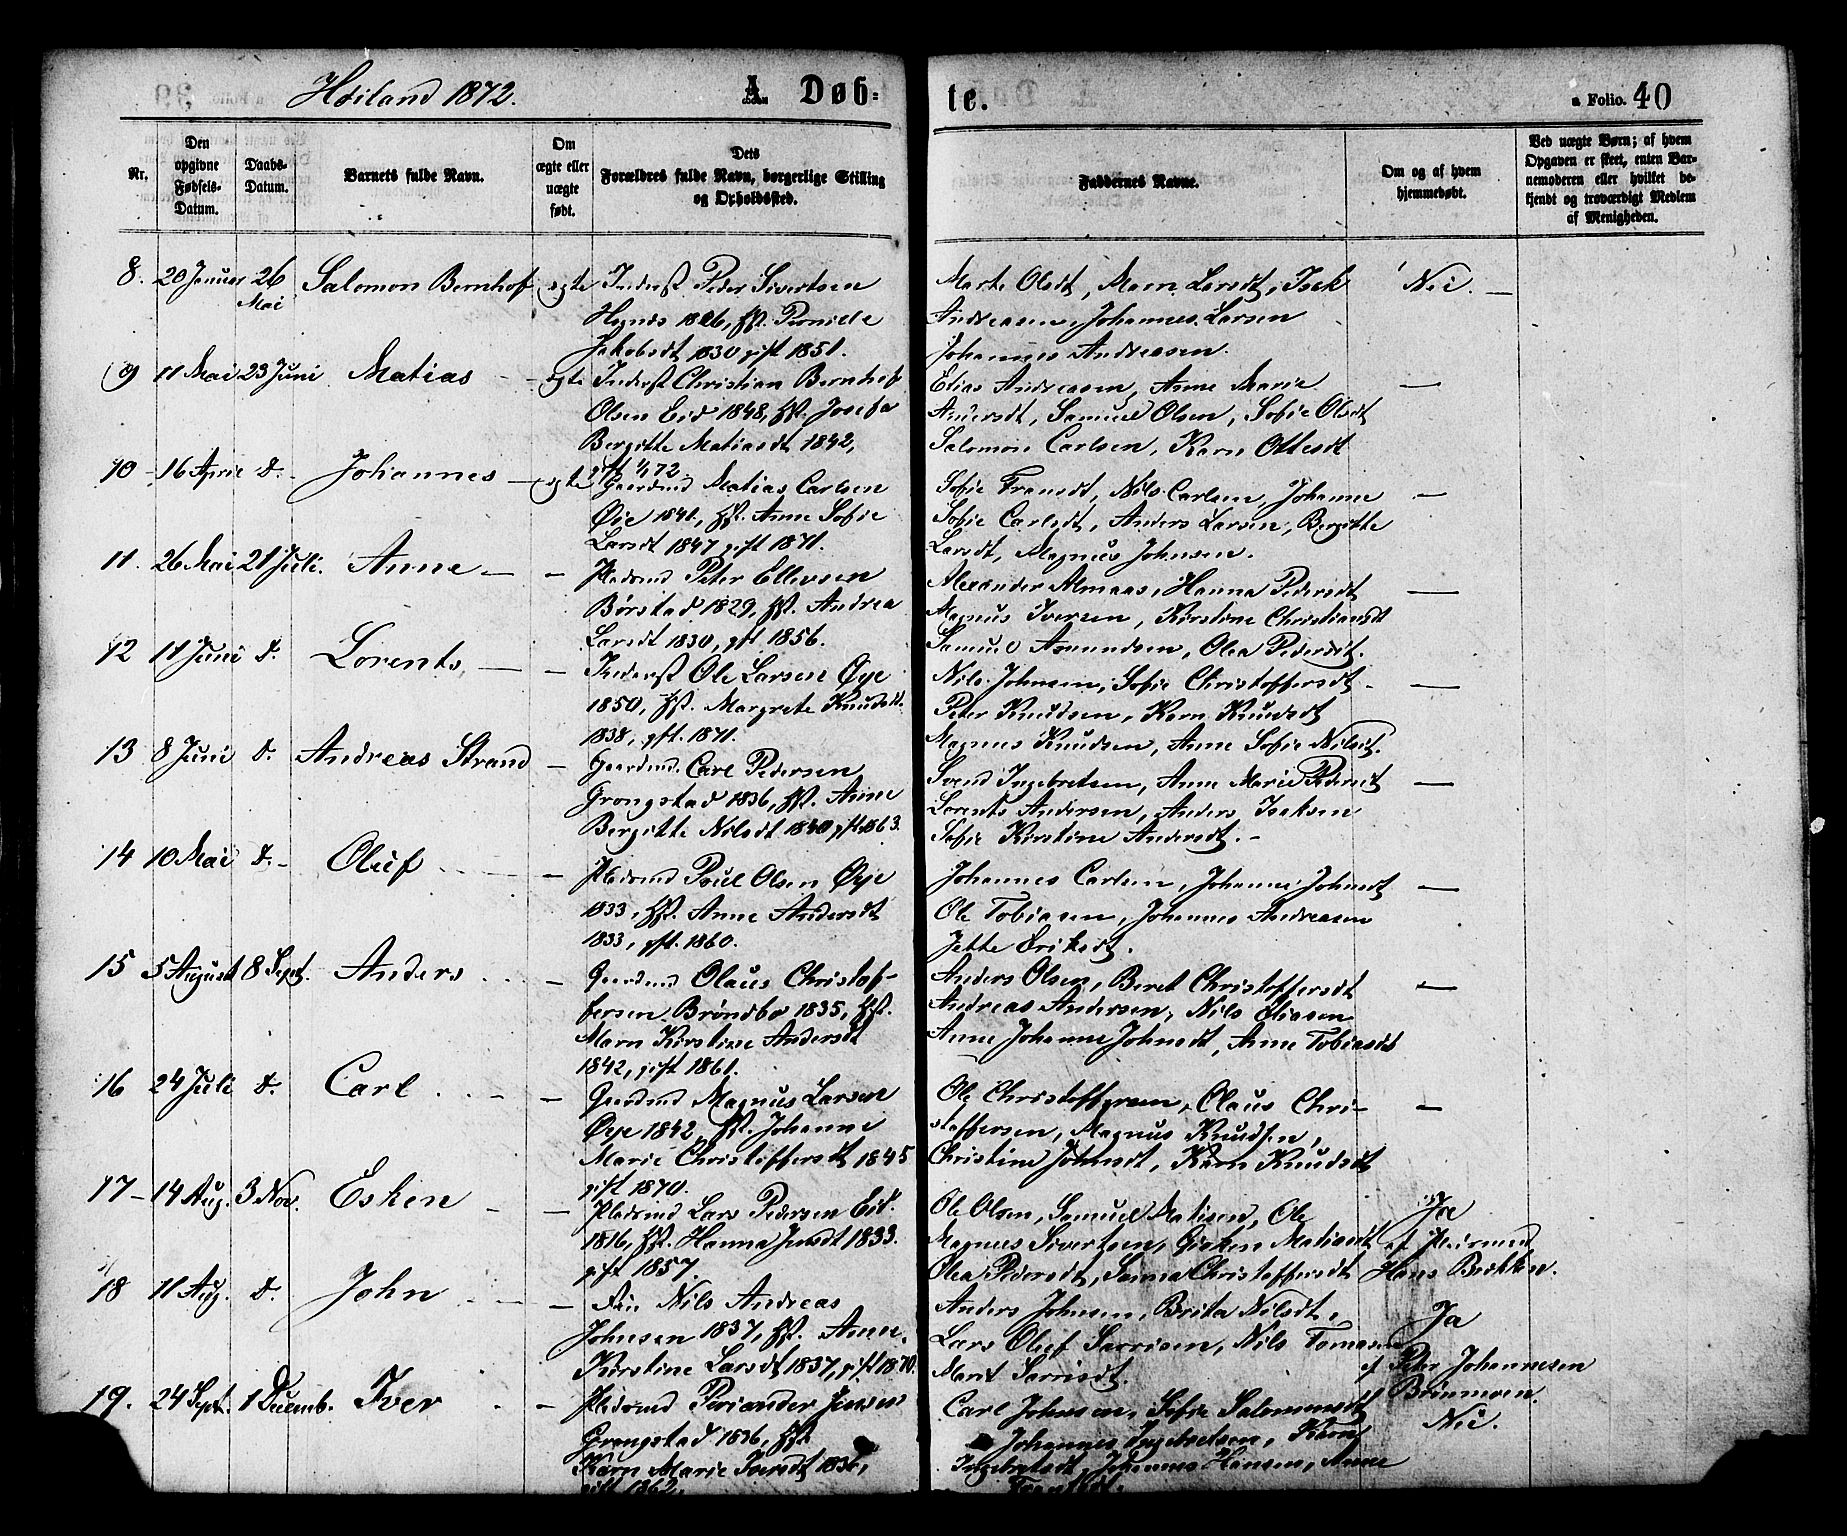 Høiland 1872.
A Døb=
te.
a Folio. 40
Nr.
Den opgivne Fødsels-Datum.
Daabs-Datum.
Barnets fulde Navn.
Om ægte eller uægte født.
Dets Forældres fulde Navn, borgerlige Stilling og Opholdssted.
Faddernes Navne.
Om og af hvem hjemmedøbt.
Ved uægte Børn; af hvem Opgaven er skeet, enten Barnemoderen eller hvilket bekjendt og troværdigt Medlem af Menigheden.
8. 20 Januar 26 Mai Salomon Bernhof ægte Inderst Peder Sivertsen
1826, Hst.
Jakobsdt 1830 gift 1851.
Marte Olsdt, Maren Larsdt, Isak
Andreasen, Johannes Larsen
Johannes Andreasen.
Nei. —
9 11 Mai 23 Juni Matias — ægte Inderst Christian Bernhof
Olsen Eid 1848, Hst. Josefa
Bergitte Matiasdt 1842,
gft 1/1 72.
Elias Andreasen, Anne Marie
Andersdt, Samuel Olsen, Sofie Olsdt
Salomon Carlsen, Karn Ottesdt
—
10 - 16 April d. - Johannes — ægte Gaardmd Matias Carlsen
Øie 1841, Hst. Anne Sofie
Larsdt 1847 gift 1871.
Sofie Fransdt, Nils Carlsen, Johanne
Sofie Carlsdt, Anders Larsen, Bergitte
Larsdt, Magnus Johnsen.
—
11. 26 Mai 21 Juli. Anne — — Pladsmd Peter Ellevsen
Børstad 1829, Hst. Andrea
Larsdt 1830, gft 1856.
Alexander Almaas, Hanna Pedersdt
Magnus Iversen, Kirstine Christiansdt
Samuel Amundsen, Olea Pedersdt.
—
12 11 Juni d. Lorents, — — Inderst Ole Larsen Øye
1850, Hst. Margrete Knudsdt
1838, gft. 1871.
Nils Johnsen, Sofie Christoffersdt -
Peter Knudsen, Karn Knudsdt
Magnus Knudsen, Anne Sofie Nilsdt.
—
13 8 Juni d. Andreas Strand — Gaardmd. Carl Pedersen
Grongstad 1836, Hst. Anne
Bergitte Nilsdt 1840 gft. 1863.
Svend Ingebretsen, Anne Marie Pedersdt
Lorents Andersen, Anders Isaksen
Sofie Kirstine Andersdt. -
—
14 10 Mai d. - Oluf — Pladsmd Poul Olsen Øye
1833, Hst. Anne Andersdt
1833, gft. 1860.
Johannes Carlsen, Johanne Johnsdt
Ole Tobiasen, Johannes Andreasen
Jette Eriksdt.
—
15 5 August 8 Sept. Anders — Gaardmd Olaus Christof-
fersen Brøndbo 1835, Hst.
Marn Kirstine Andersdt
1842, gift 1861.
Anders Olsen, Beret Christoffersdt
Andreas Andersen, Nils Eliasen
Anne Johanne Johnsdt, Anne Tobiasdt
—
16 24 Juli d. Carl — Gaardmd Magnus Larsen
Øye 1842, Hst. Johanne
Marie Christoffersdt 1845
gift 1870.
Ole Christoffersen, Olaus Chri-
stoffersen, Magnus Knudsen,
Christine Johnsdt, Karn Knudsdt
—
17 - 14 Aug. 3 Nov. Esken — Pladsmd Lars Pedersen Eid.
1816, Hst. Hanna Jensdt 1833.
gift 1857
Ole Olsen, Samuel Matisen, Ole
Magnus Sivertsen, Matiasdt
Olea Pedersdt, Sanna Christoffersdt
Ja
af
Hans Brekken.
18 11 Aug. d. John — Nils Andreas
Johnsen 1837, Hst. Anne
Kirstine Larsdt 1837, gift 1870.
Anders Johnsen, Brita Nilsdt,
Lars Oluf Sarrisen, Nils Tomasen
Marit Sarrisdt.
Ja
af Peter Johannesen
19. 24 Sept. 1 Decemb. Iver — Pladsmd Periander Jensen
Grongstad 1836, Hst
Karn Marie Iversdt 1836,
gift 1862
Carl Johnsen, Sofie Salomonsdt
Johannes Ingebretsen, Karn
Ingebretsdt, Johannes Hansen, Anne
Nei.